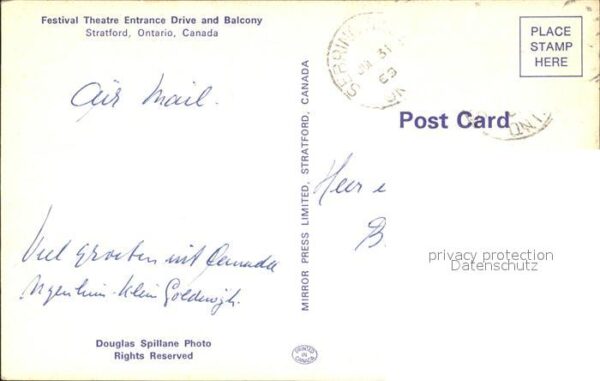 Festival Theatre Entrance Drive and Balcony
Stratford, Ontario, Canada
PLACE
STAMP
HERE
31
Air Mail.
Post Card
MIRROR PRESS LIMITED, STRATFORD, CANADA
Heer
B.
Veel groeten uit Canada
Klein Goldewijk.
privacy protection
Datenschutz
Douglas Spillane Photo
Rights Reserved
PRINTED
IN
CANADA